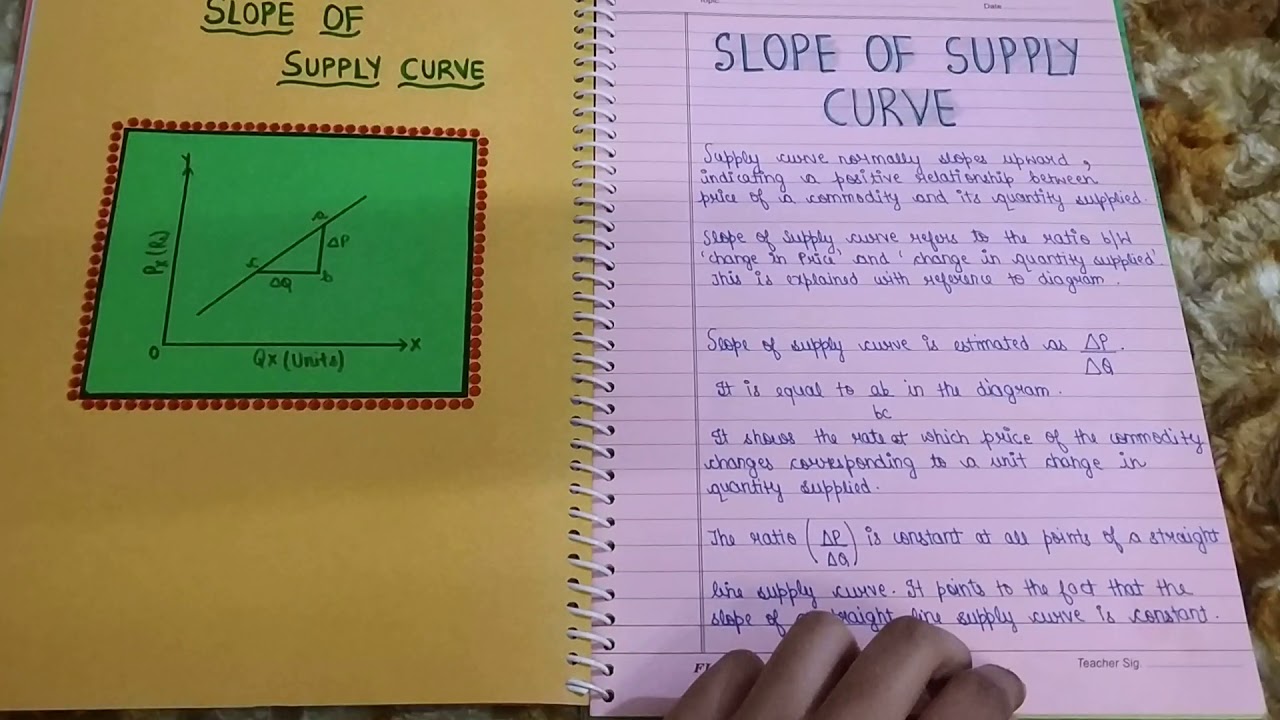 SLOPE OF
SUPPLY CURVE
Y
Px (Rs)
a
ΔP
c
ΔQ
b
O
X
Qx (Units)
Date
SLOPE OF SUPPLY
CURVE
Supply curve normally slopes upward,
indicating a positive relationship between
price of a commodity and its quantity supplied.
Slope of supply curve refers to the ratio b/W
'change in Price' and 'change in quantity supplied'
This is explained with reference to diagram.
Slope of supply curve is estimated as ΔP/ΔQ.
It is equal to ab/bc in the diagram.
It shows the rate at which price of the commodity
changes corresponding to a unit change in
quantity supplied.
The ratio (ΔP/ΔQ) is constant at all points of a straight
line supply curve. It points to the fact that the
slope of a straight line supply curve is constant.
Teacher Sig.